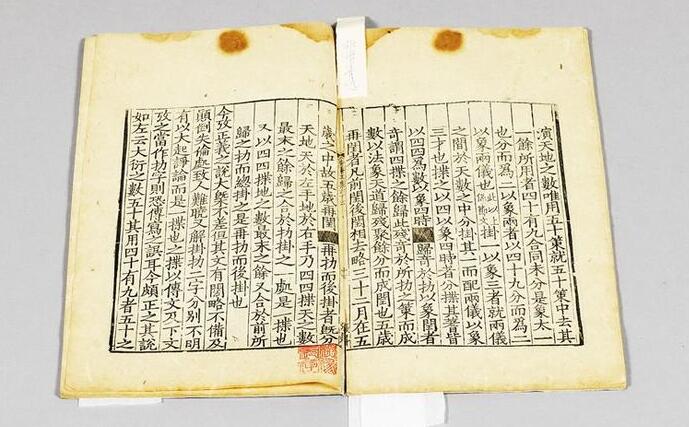 演天地之數唯用五十策就五十策中去其
一餘所用者四十有九合同未分是象太一
也分而為二以象兩者以四十九分而為二
以象兩儀也掛一以象三者就兩儀
之間於天數之中分掛其一而配兩儀以象
三才也揲之以四以象四時者分揲其蓍皆
以四四為數以象四時歸奇於扐以象閏者
奇謂四揲之餘歸此殘奇於所扐之策而成
數以法象天道歸殘聚餘分而成閏也五歲
再閏者凡前閏後閏相去略三十二月在五
歲之中故五歲再閏再扐而後掛者既分
天地天於左手地於右手乃四四揲天之數
最末之餘歸之合於扐掛之一處是一揲也
又以四四揲地之數最末之餘又合於前所
歸之扐而總掛之是再扐而後掛也
今攷正義之說大槩不差但其文有闕略不備及
顛倒失倫處致人難曉又解掛扐二字分別不明
有以大起諍論而是一揲也之揲以傳文及下文
攷之當作扐字則恐傳寫之誤耳今頗正之其說
如左云大衍之數五十其用四十有九者五十之